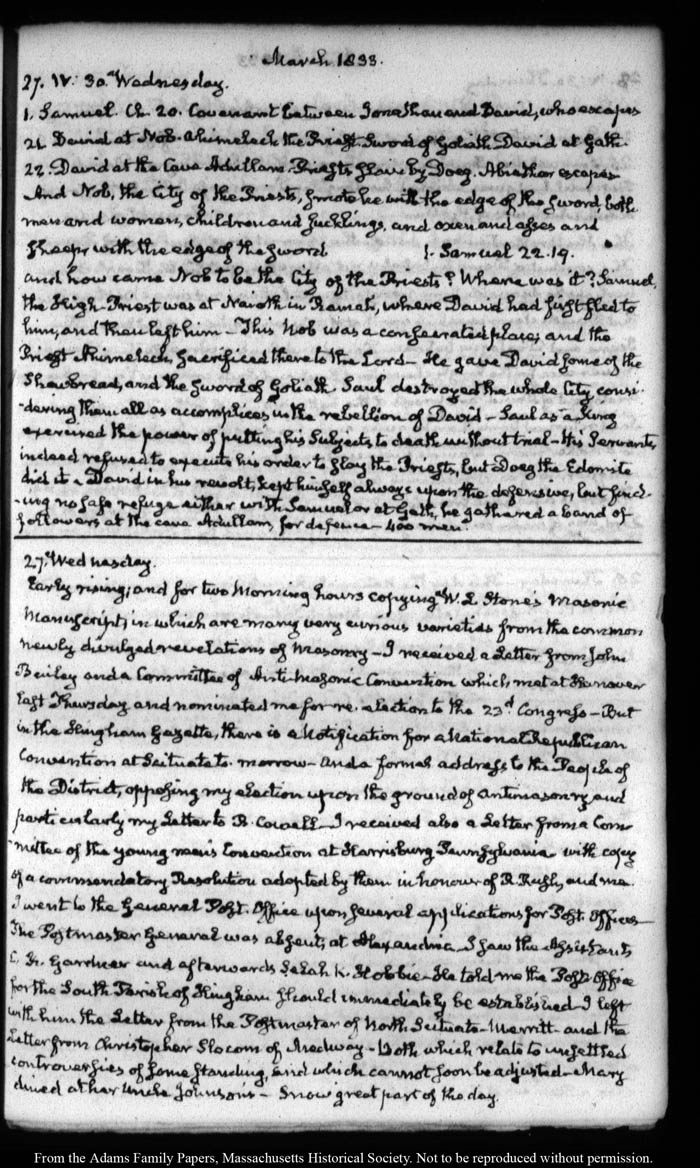 March 1833.
27. IV: 30. Wednesday.
1. Samuel. Ch. 20. Covenant between Jonathan and David, who escapes
21. David at Nob. Ahimelech the Priest. Sword of Goliath. David at Gath.
22. David at the Cave Adullam. Priests slain by Doeg. Abiathar escapes
And Nob, the City of the Priests, smote he with the edge of the sword, both
men and women, children and sucklings, and oxen and asses and
sheep, with the edge of the sword 1. Samuel 22.19.
and how came Nob to be the City of the Priests? Where was it? Samuel,
the High-Priest was at Naioth in Ramah, where David had first fled to
him, and then left him — This Nob was a consecrated place, and the
Priest Ahimelech, sacrificed there to the Lord — He gave David some of the
Shewbread, and the sword of Goliath. Saul destroyed the whole City, consi-
-dering them all as accomplices in the rebellion of David — Saul as a King
exercised the power of putting his Subjects to death without trial — His Servants
indeed refused to execute his order to slay the Priests, but Doeg the Edomite
did it — David in his revolt, kept himself always upon the defensive, but find-
-ing no safe refuge either with Samuel or at Gath, he gathered a band of
followers at the cave Adullam, for defence — 400 men.
27. Wednesday.
Early rising; and for two morning hours copying W. L. Stone's Masonic
Manuscript, in which are many very curious varieties from the common
newly divulged revelations of Masonry — I received a Letter from John
Bailey and a Committee of Anti-Masonic Convention which, met at Hanover
last Thursday and nominated me for re-election to the 23d Congress — But
in the Hingham Gazette, there is a Notification for a National Republican
Convention at Scituate to-morrow — and a formal address to the People of
the District, opposing my election upon the ground of Antimasonry, and
particularly my Letter to B. Cowell — I received also a Letter from a Com-
-mittee of the young men's Convention at Harrisburg Pennsylvania with copy
of a commendatory Resolution adopted by them in honour of R. Rush, and me.
I went to the General Post-Office upon several applications for Post Offices —
The Postmaster General was absent, at Alexandria — I saw the Assistants
C. K. Gardner and afterwards Selah R. Hobbie — He told me the Post-Office
for the South Parish of Hingham should immediately be established — I left
with him the Letter from the Postmaster of North Scituate — Merritt — and the
Letter from Christopher Slocom of Medway — Both which relate to unsettled
controversies of some standing, and which cannot soon be adjusted — Mary
dined at her Uncle Johnson's — Snow great part of the day.
From the Adams Family Papers, Massachusetts Historical Society. Not to be reproduced without permission.